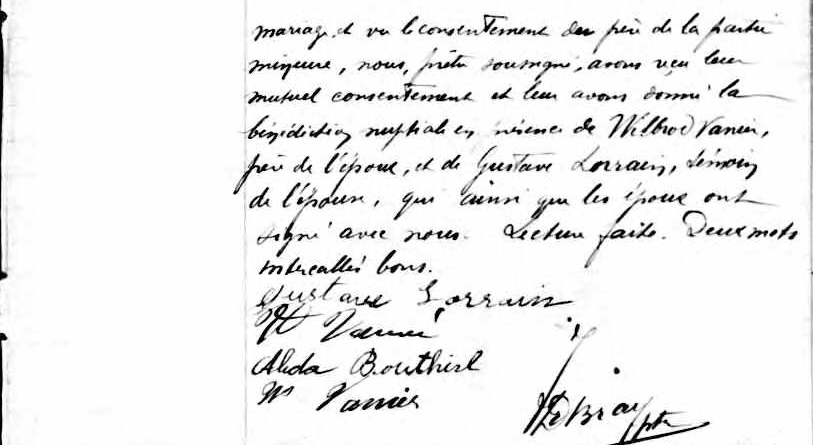 mariage, et vu le consentement du père de la partie
mineure, nous, prêtre soussigné, avons reçu leur
mutuel consentement et leur avons donné la
bénédiction nuptiale en présence de Wilbrod Vanier,
père de l'époux, et de Gustave Lorrain, témoin
de l'épouse, qui ainsi que les époux ont
signé avec nous. Lecture faite. Deux mots
intercallés bons.
Gustave Lorrain
W Vanier
Alida Bouthiel
W Vanier